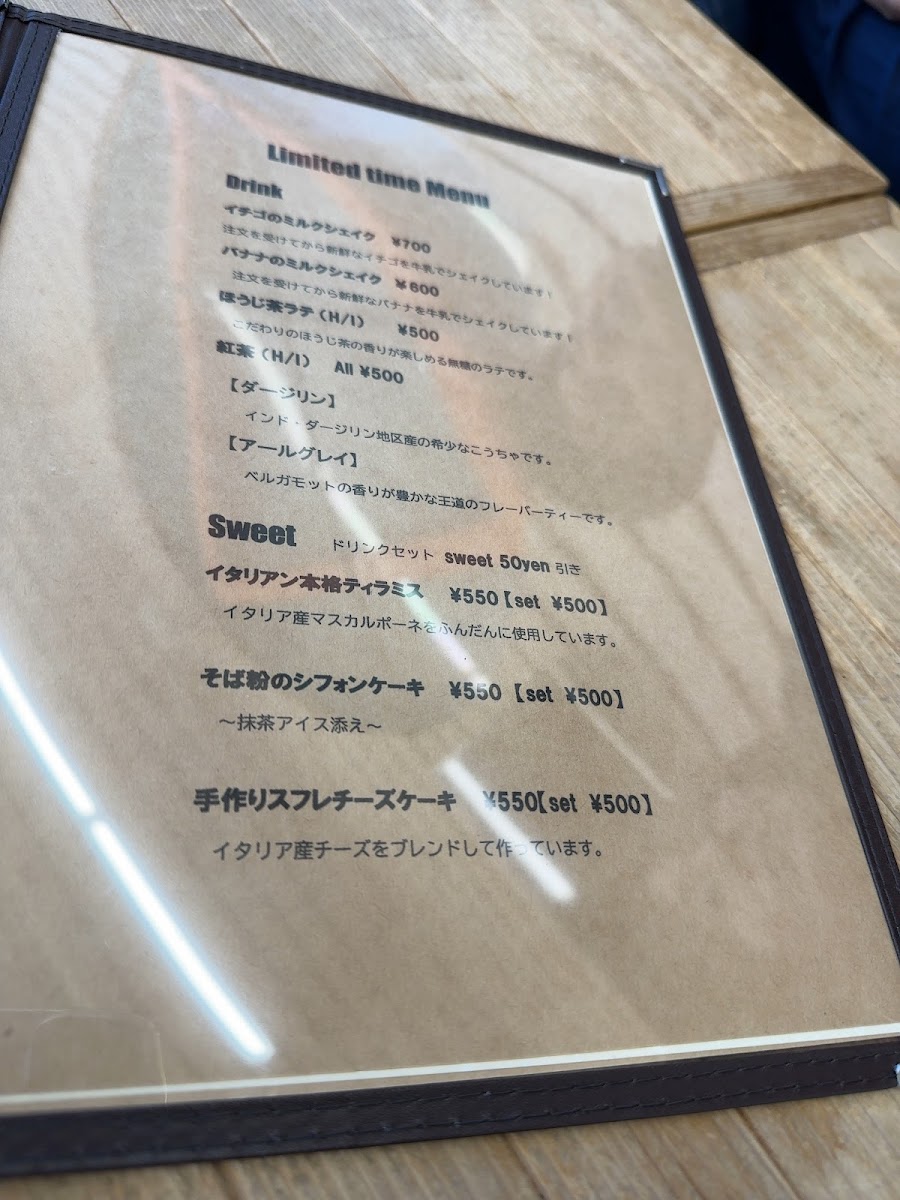 Limited time Menu
Drink
イチゴのミルクシェイク ¥700
注文を受けてから新鮮なイチゴを牛乳でシェイクしています！
バナナのミルクシェイク ¥600
注文を受けてから新鮮なバナナを牛乳でシェイクしています！
ほうじ茶ラテ（H/I） ¥500
こだわりのほうじ茶の香りが楽しめる無糖のラテです。
紅茶（H/I） All ¥500
【ダージリン】
インド・ダージリン地区産の希少なこうちゃです。
【アールグレイ】
ベルガモットの香りが豊かな王道のフレーバーティーです。
Sweet ドリンクセット sweet 50yen 引き
イタリアン本格ティラミス ¥550【set ¥500】
イタリア産マスカルポーネをふんだんに使用しています。
そば粉のシフォンケーキ ¥550【set ¥500】
～抹茶アイス添え～
手作りスフレチーズケーキ ¥550【set ¥500】
イタリア産チーズをブレンドして作っています。